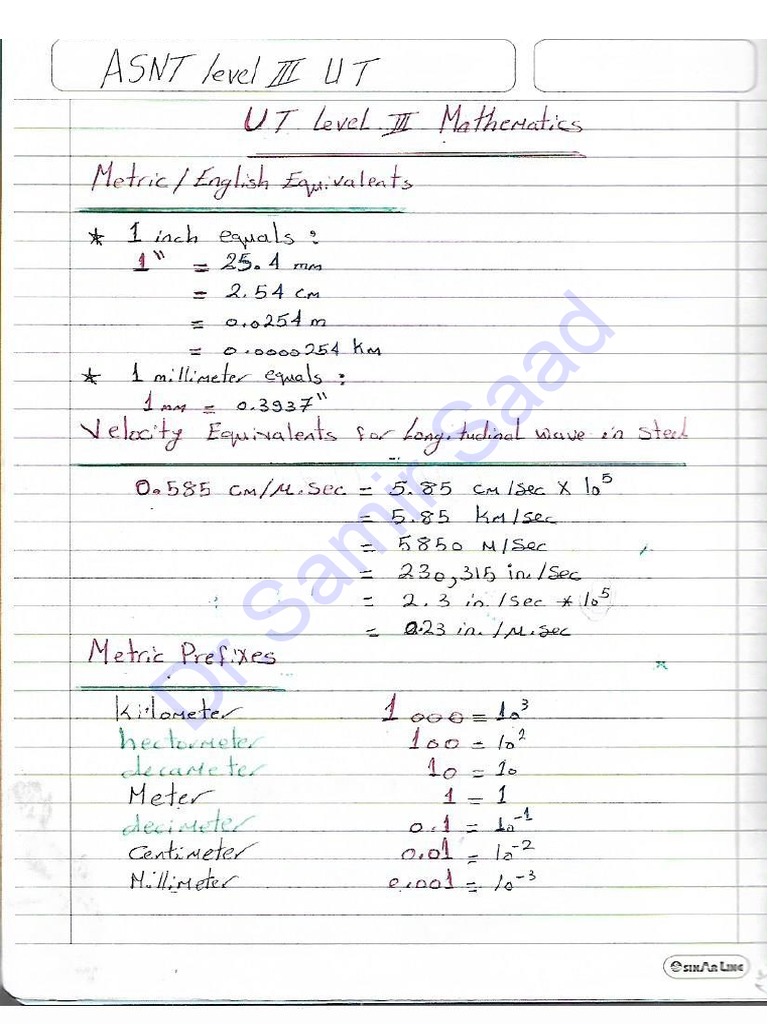 ASNT level III UT
UT Level III Mathematics
Metric/English Equivalents
* 1 inch equals :
1" = 25.4 mm
= 2.54 cm
= 0.0254 m
= 0.0000254 Km
* 1 millimeter equals :
1 mm = 0.3937"
Velocity Equivalents for Longitudinal wave in steel
0.585 cm/M.sec = 5.85 cm/sec x 10⁵
= 5.85 Km/sec
= 5850 M/sec
= 230,315 in./sec
= 2.3 in./sec * 10⁵
= 0.23 in./M.sec
Metric Prefixes
kilometer 1 000 = 10³
hectormeter 100 = 10²
decameter 10 = 10
Meter 1 = 1
decimeter 0.1 = 10⁻¹
Centimeter 0.01 = 10⁻²
Millimeter 0.001 = 10⁻³
SINAR LINE
Dr Samir Saad